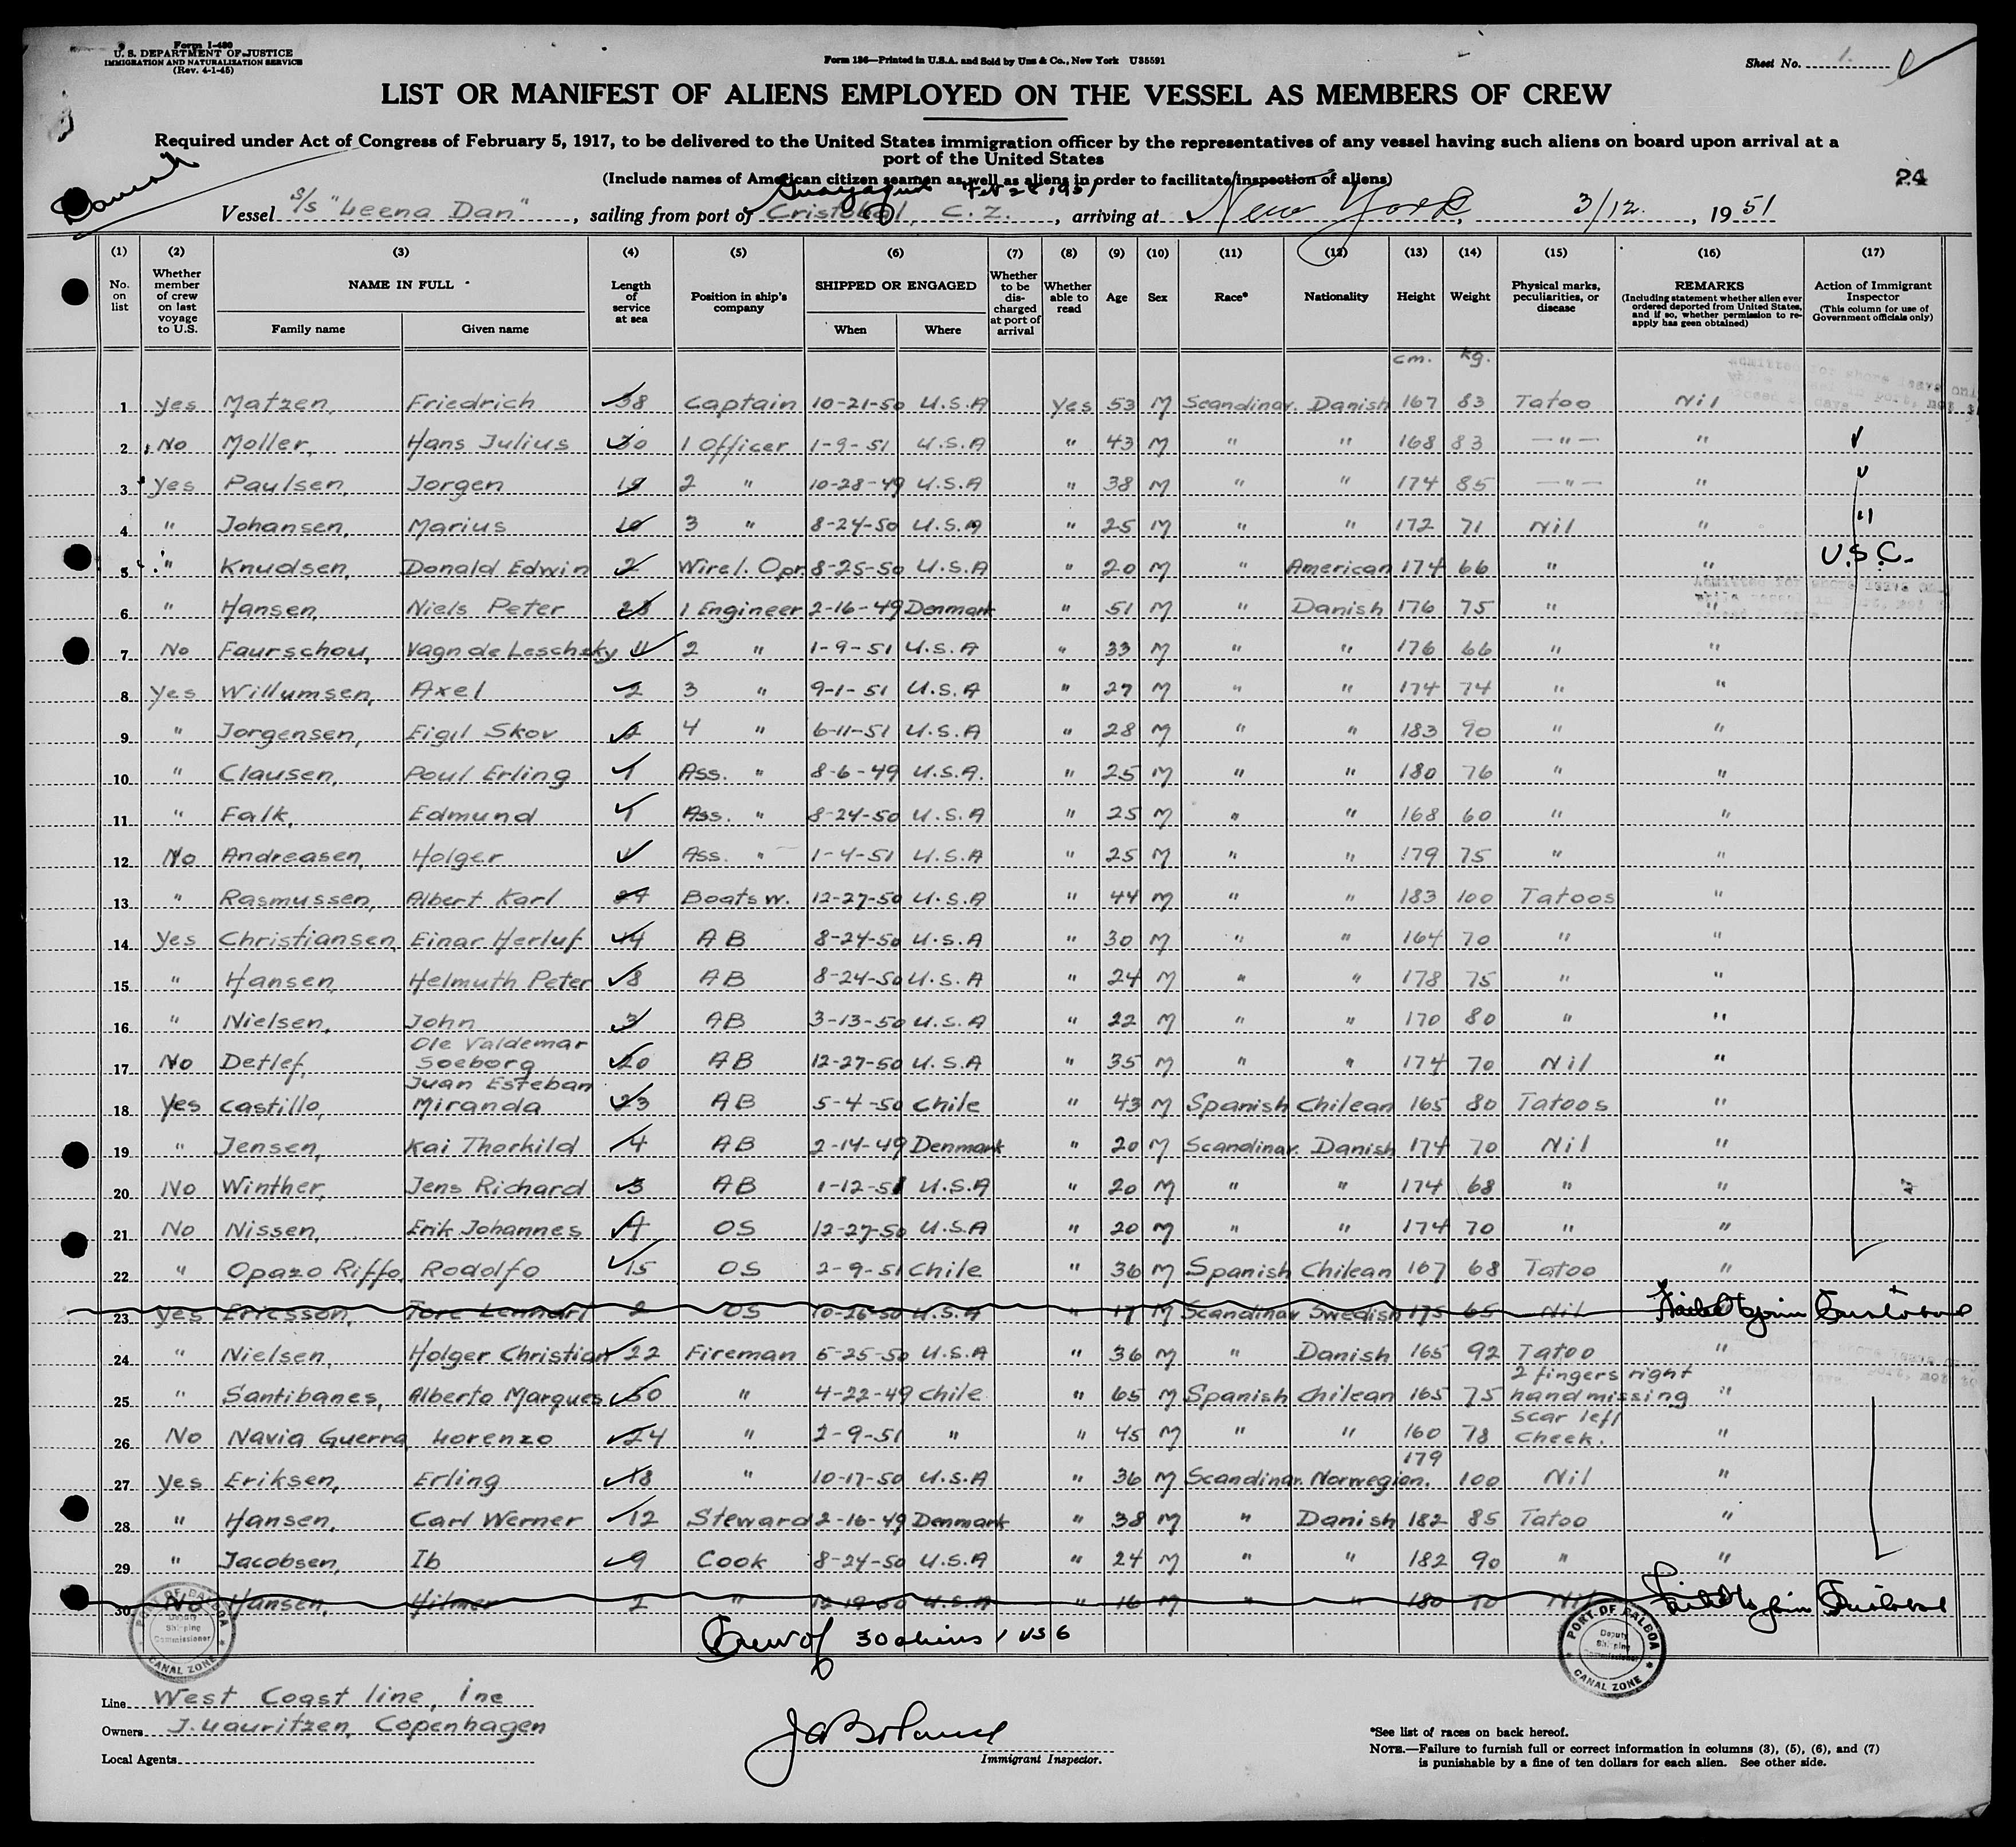 Form I-480
U. S. DEPARTMENT OF JUSTICE
IMMIGRATION AND NATURALIZATION SERVICE
(Rev. 4-1-45)
Form 136—Printed in U.S.A. and Sold by Unz & Co., New York U35591
Sheet No. 1.
LIST OR MANIFEST OF ALIENS EMPLOYED ON THE VESSEL AS MEMBERS OF CREW
Required under Act of Congress of February 5, 1917, to be delivered to the United States immigration officer by the representatives of any vessel having such aliens on board upon arrival at a
port of the United States
(Include names of American citizen seamen as well as aliens in order to facilitate inspection of aliens)
24
Danish
Guayaquil Feb 28 1951
Vessel S/S "Leena Dan", sailing from port of Cristobal, C.Z., arriving at New York, 3/12, 1951
(1) (2) (3) (4) (5) (6) (7) (8) (9) (10) (11) (12) (13) (14) (15) (16) (17)
No. on list
Whether member of crew on last voyage to U.S.
NAME IN FULL
Family name Given name
Length of service at sea
Position in ship's company
SHIPPED OR ENGAGED
When Where
Whether to be discharged at port of arrival
Whether able to read
Age
Sex
Race*
Nationality
Height
Weight
Physical marks, peculiarities, or disease
REMARKS
(Including statement whether alien ever ordered deported from United States, and if so, whether permission to re-apply has geen obtained)
Action of Immigrant Inspector
(This column for use of Government officials only)
cm. kg.
1 Yes Matzen, Friedrich 38 Captain 10-21-50 U.S.A Yes 53 M Scandinav. Danish 167 83 Tatoo Nil
2 No Moller, Hans Julius 30 1 Officer 1-9-51 U.S.A " 43 M " " 168 83 —"— "
3 Yes Paulsen, Jorgen 19 2 " 10-28-49 U.S.A " 38 M " " 174 85 —"— "
4 " Johansen, Marius 10 3 " 8-24-50 U.S.A " 25 M " " 172 71 Nil "
5 " Knudsen, Donald Edwin 2 Wirel. Opr. 8-25-50 U.S.A " 20 M " American 174 66 " " U.S.C.
6 " Hansen, Niels Peter 28 1 Engineer 2-16-49 Denmark " 51 M " Danish 176 75 " "
7 No Faurschou, Vagn de Leschsky 11 2 " 1-9-51 U.S.A " 33 M " " 176 66 " "
8 Yes Willumsen, Axel 2 3 " 9-1-51 U.S.A " 27 M " " 174 74 " "
9 " Jorgensen, Eigil Skov 2 4 " 6-11-51 U.S.A " 28 M " " 183 90 " "
10 " Clausen, Poul Erling 1 Ass. " 8-6-49 U.S.A. " 25 M " " 180 76 " "
11 " Falk, Edmund 1 Ass. " 8-24-50 U.S.A " 25 M " " 168 60 " "
12 No Andreasen, Holger 1 Ass. " 1-4-51 U.S.A " 25 M " " 179 75 " "
13 " Rasmussen, Albert Karl 27 Boatsw. 12-27-50 U.S.A " 44 M " " 183 100 Tatoos "
14 Yes Christiansen, Einar Herluf 14 AB 8-24-50 U.S.A " 30 M " " 164 70 " "
15 " Hansen, Helmuth Peter 8 AB 8-24-50 U.S.A " 24 M " " 178 75 " "
16 " Nielsen, John 3 AB 3-13-50 U.S.A " 22 M " " 170 80 " "
17 No Detlef, Ole Valdemar Soeborg 20 AB 12-27-50 U.S.A " 35 M " " 174 70 Nil "
18 Yes Castillo, Juan Esteban Miranda 23 AB 5-4-50 Chile " 43 M Spanish Chilean 165 80 Tatoos "
19 " Jensen, Kai Thorkild 4 AB 2-14-49 Denmark " 20 M Scandinav. Danish 174 70 Nil "
20 No Winther, Jens Richard 3 AB 1-12-51 U.S.A " 20 M " " 174 68 " "
21 No Nissen, Erik Johannes 4 OS 12-27-50 U.S.A " 20 M " " 174 70 " "
22 " Opazo Riffo, Rodolfo 15 OS 2-9-51 Chile " 36 M Spanish Chilean 167 68 Tatoo "
23 Yes Ericsson, Tore Lennart 2 OS 10-26-50 U.S.A " 17 M Scandinav Swedish 175 65 Nil Failed to join Cristobal
24 " Nielsen, Holger Christian 22 Fireman 5-25-50 U.S.A " 36 M " Danish 165 92 Tatoo "
25 " Santibanes, Alberto Marques 50 " 4-22-49 Chile " 65 M Spanish Chilean 165 75 2 fingers right hand missing "
26 No Navia Guerra Lorenzo 24 " 2-9-51 " " 45 M " " 160 78 Scar left Cheek. "
27 Yes Eriksen, Erling 18 " 10-17-50 U.S.A " 36 M Scandinav. Norwegian. 179 100 Nil "
28 " Hansen, Carl Werner 12 Steward 2-16-49 Denmark " 38 M " Danish 182 85 Tatoo "
29 " Jacobsen, Ib 9 Cook 8-24-50 U.S.A " 24 M " " 182 90 " "
30 No Hansen, Hilmer 2 " 12-19-50 U.S.A " 16 M " " 180 70 Nil Failed to join Cristobal
Crew of 30 aliens 1 USC
PORT OF BALBOA Deputy Shipping Commissioner CANAL ZONE
PORT OF BALBOA Deputy Shipping Commissioner CANAL ZONE
Line West Coast line, inc
Owners J. Lauritzen, Copenhagen
Local Agents
Immigrant Inspector.
*See list of races on back hereof.
NOTE.—Failure to furnish full or correct information in columns (3), (5), (6), and (7)
is punishable by a fine of ten dollars for each alien. See other side.